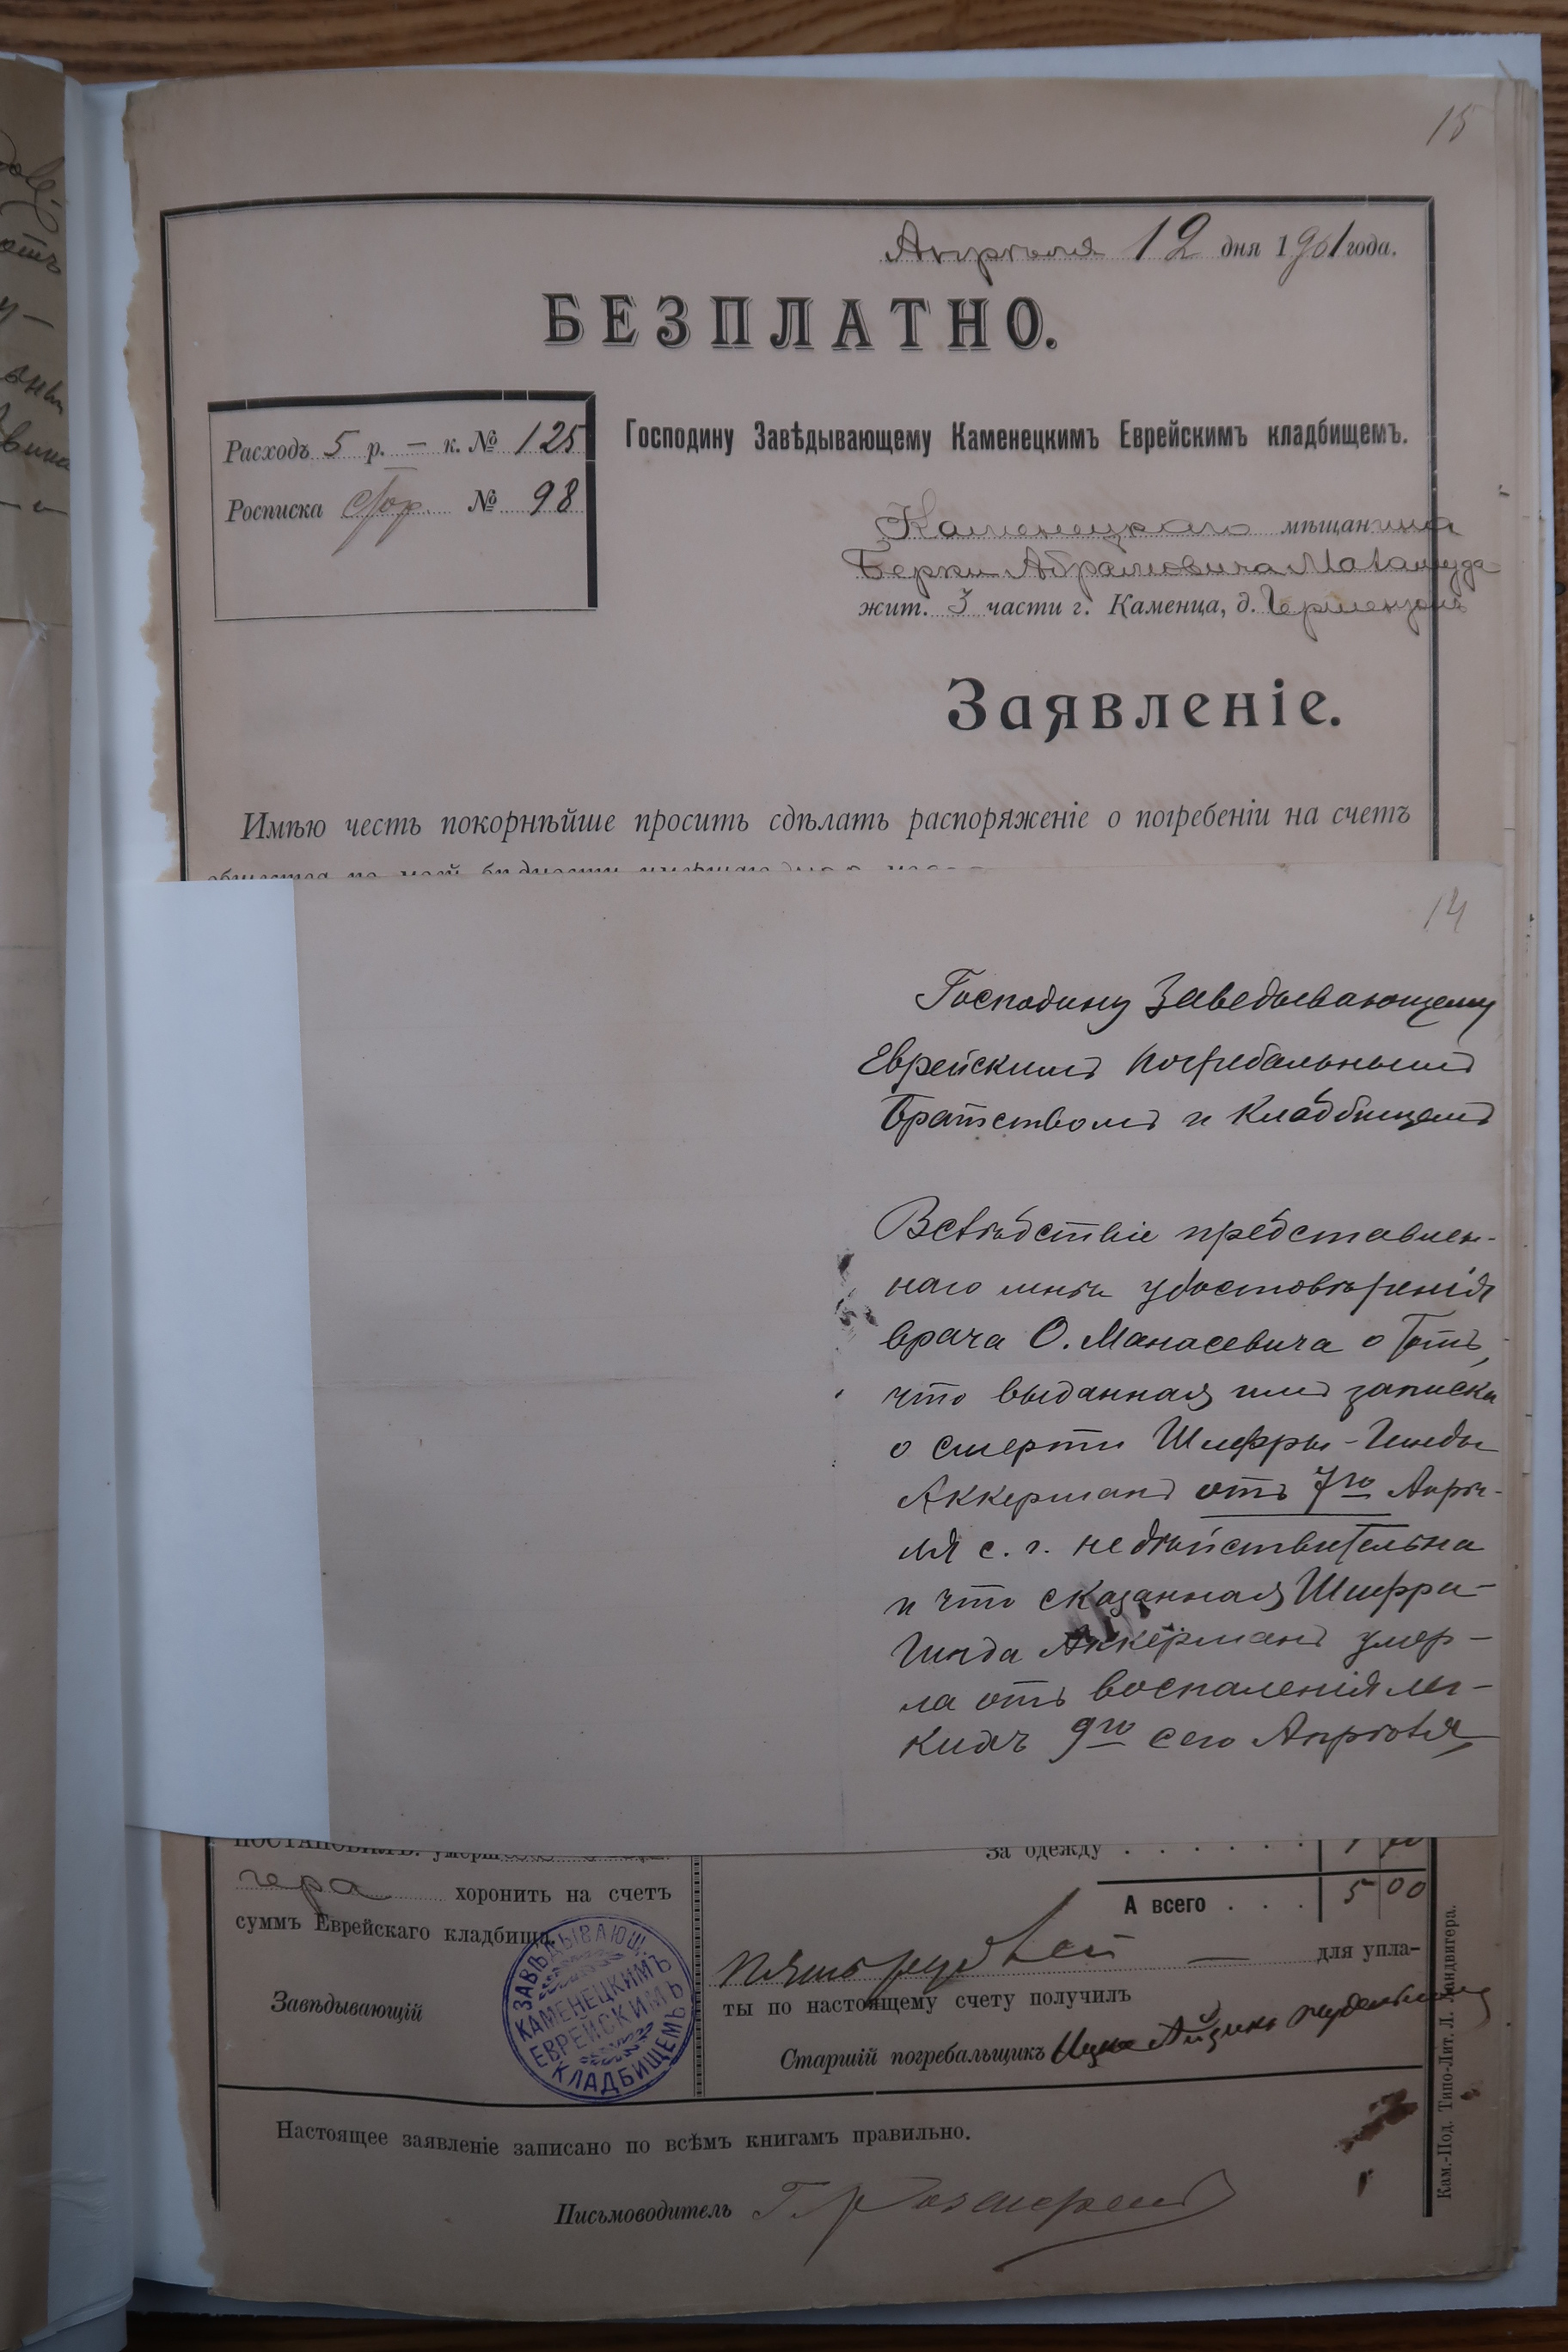 15
Апрѣля 12 дня 1901 года.
БЕЗПЛАТНО.
Расходъ 5 р. — к. № 125
Росписка № 98
Господину Завѣдывающему Каменецкимъ Еврейскимъ кладбищемъ.
Каменецкаго мѣщанина
Берки Абрамовича
жит. 3 части г. Каменца, д.
Заявленіе.
Имѣю честь покорнѣйше просить сдѣлать распоряженіе о погребеніи на счетъ
общества по моей бѣдности умершаго
14
Господину Заведывающему
Еврейскимъ погребальнымъ
Братствомъ и Кладбищемъ
Вслѣдствіе представлен-
наго мнѣ удостовѣренія
врача О. Манасевича о томъ,
что выданная имъ записка
о смерти Шифры-Гинды
Аккерманъ отъ 7го Апрѣ-
ля с. г. недѣйствительна
и что сказанная Шифра-
Гинда Аккерманъ умер-
ла отъ воспаленія лег-
кихъ 9го сего Апрѣля,
постановилъ: умерш
хоронить на счетъ
суммъ Еврейскаго кладбища.
Завѣдывающій
ЗАВѢДЫВАЮЩ.
КАМЕНЕЦКИМЪ
ЕВРЕЙСКИМЪ
КЛАДБИЩЕМЪ
За одежду
А всего 5 00
пять рублей — для упла-
ты по настоящему счету получилъ
Старшій погребальщикъ Ицко Айзикъ
Настоящее заявленіе записано по всѣмъ книгамъ правильно.
Письмоводитель Г.
Кам.-Под. Типо-Лит. Л. Ландвигера.